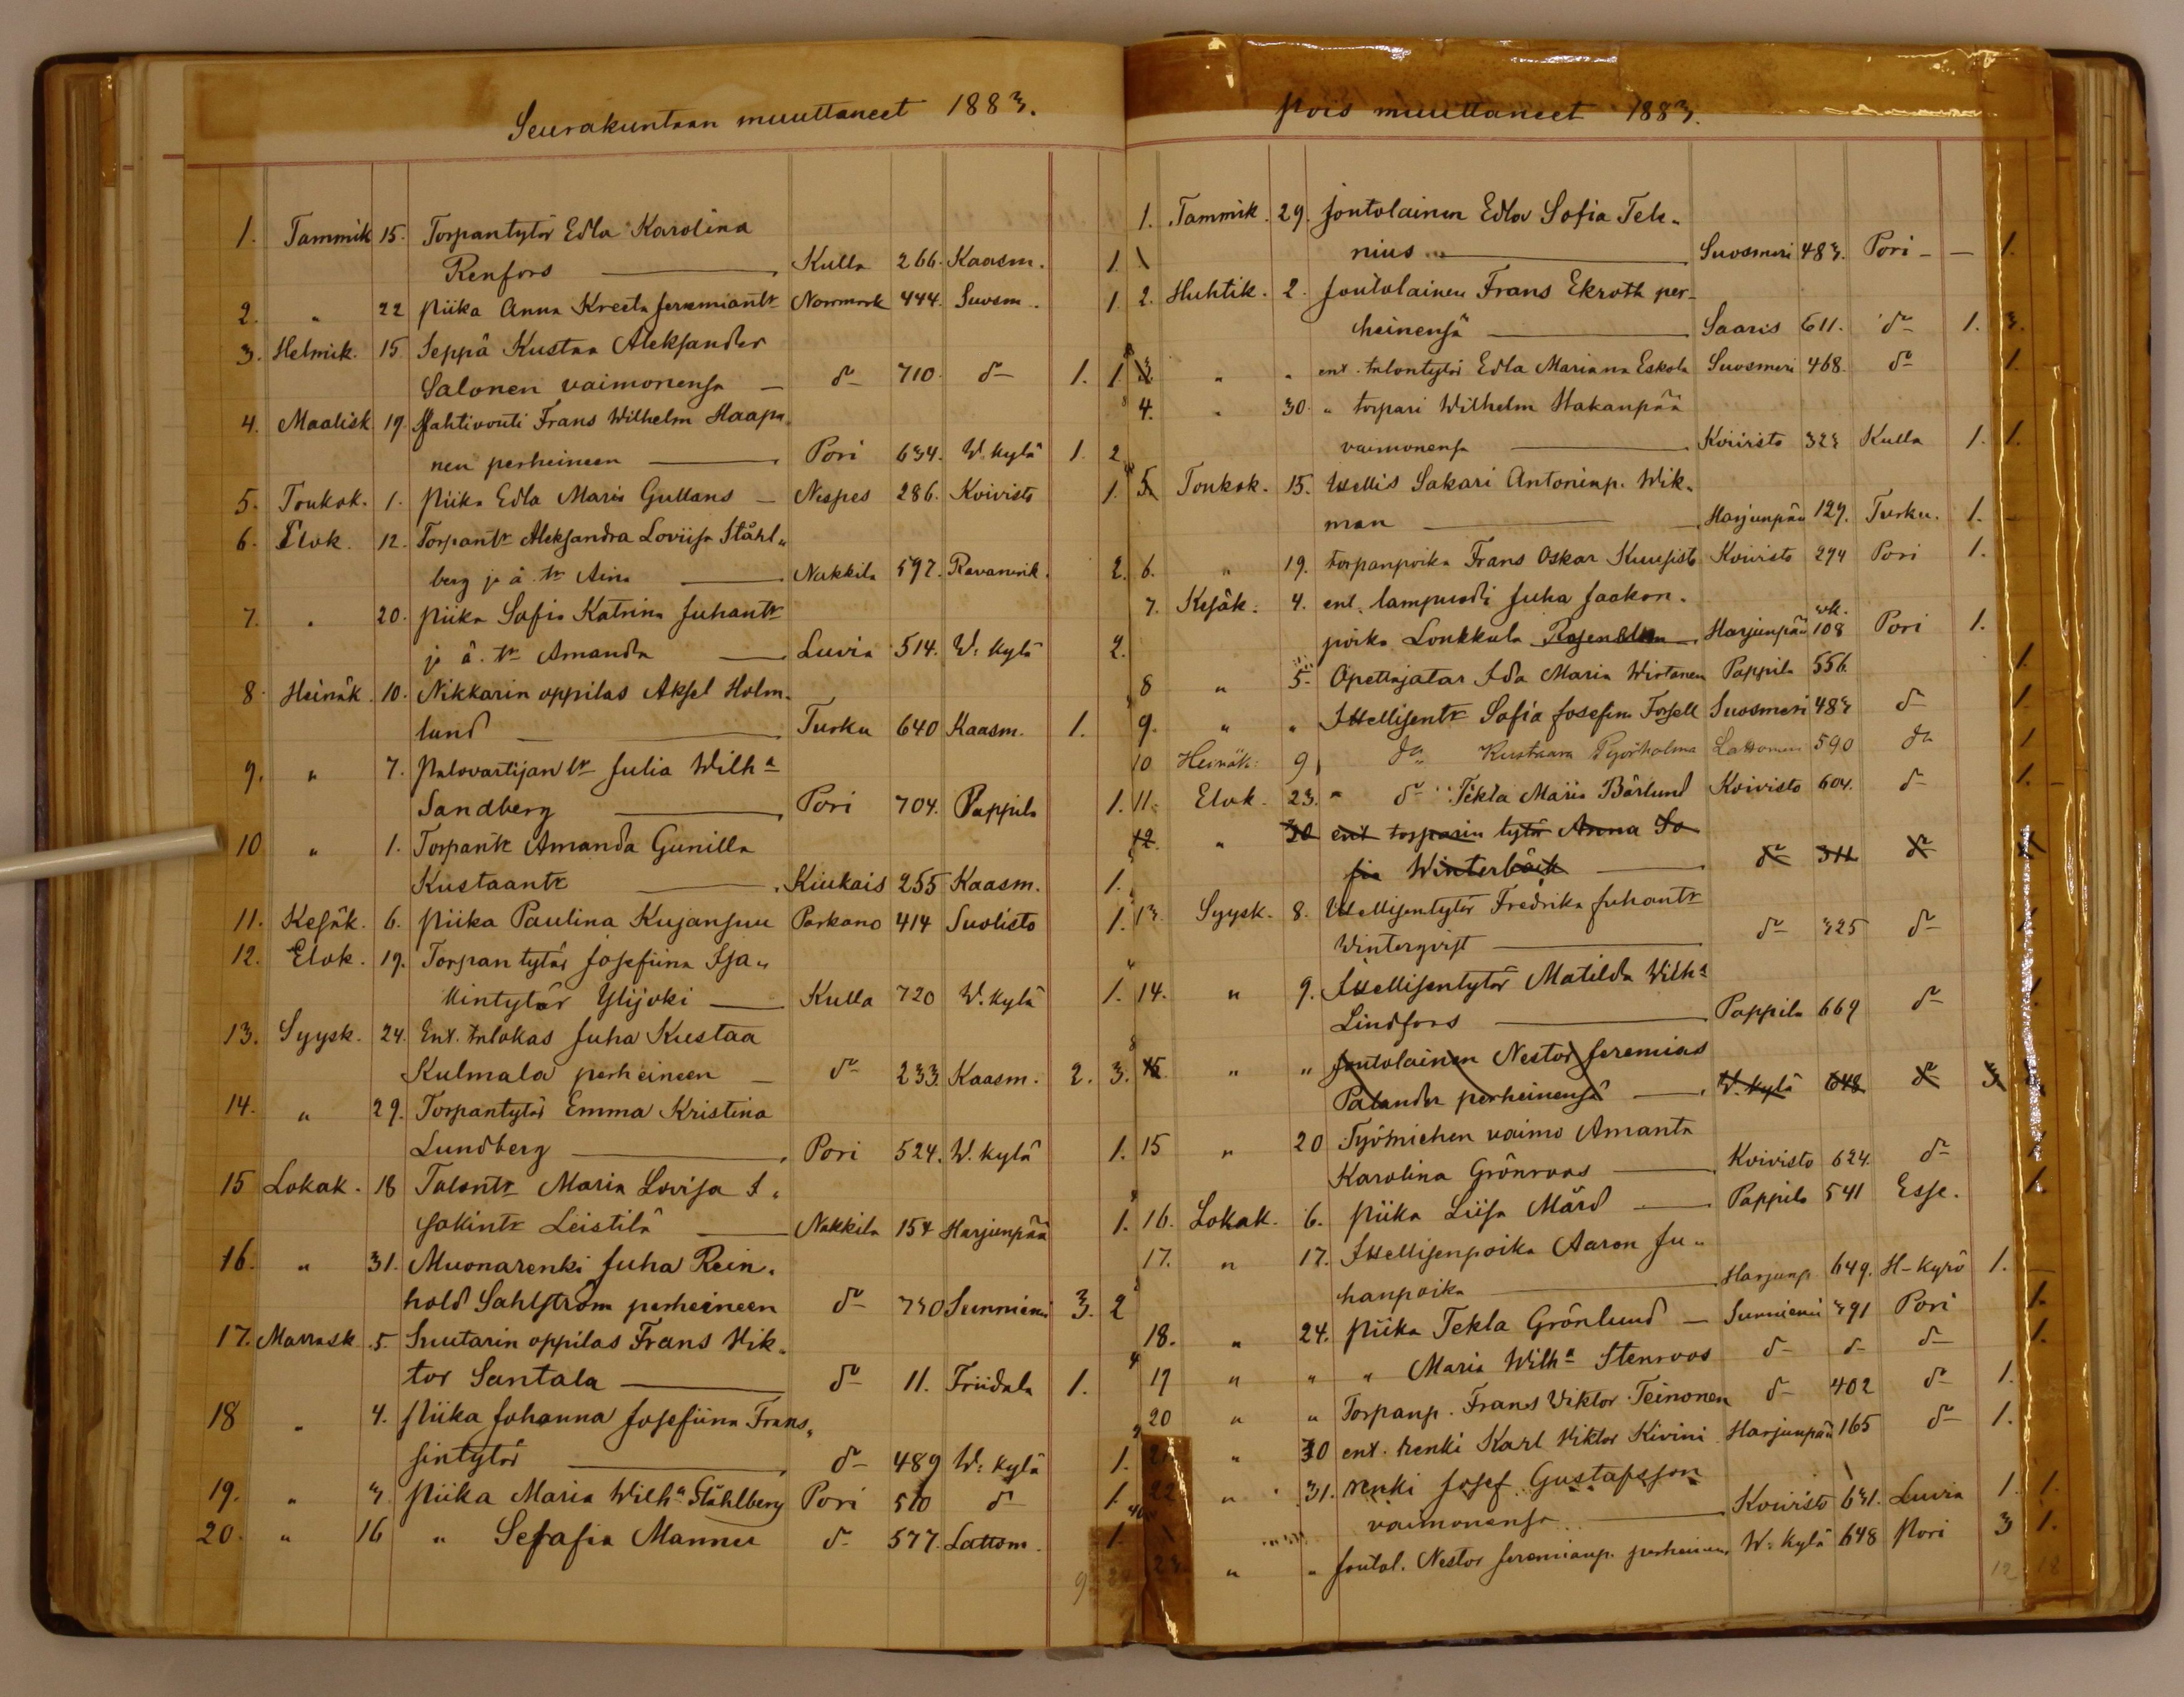 Seurakuntaan muuttaneet 1883.
1. Tammik 15. Torpantytör Edla Karolina
Renfors — Kulla 266. Kaasm. 1.
2. " 22 Piika Anna Kreeta Jeremiantr Norrmark 444. Suosm. 1.
3. Helmik. 15 Seppä Kustaa Aleksander
Salonen vaimonensa — do 710. do 1. 1.
4. Maalisk 19. Pahtivouti Frans Wilhelm Haapa„
nen perheineen — Pori 634. W. kylä 1. 2
5. Toukok. 1. Piika Edla Maria Gullans — Nespes 286. Koivisto 1.
6. Elok. 12. Torpantr Aleksandra Loviisa Ståhl„
berg ja ä. tr Aina — Nakkila 597. Ravanink. 2.
7. " 20. Piika Sofia Katrina Juhantr
ja ä. tr Amanda — Luvia 514. W. kylä 2.
8. Heinäk. 10. Nikkarin oppilas Aksel Holm„
lund — Turku 640 Kaasm. 1.
9. " 7. Palovartijantr Julia Wilha
Sandberg — Pori 704. Pappila 1.
10 " 1. Torpantr Amanda Gunilla
Kustaantr — Kiukais 255 Kaasm. 1.
11. Kesäk. 6. Piika Paulina Kujansuu Parkano 414 Suolisto 1.
12. Elok. 19. Torpan tytär Josefiina Isa„
kintytär Ylijoki — Kulla 720 W. kylä 1.
13. Syysk. 24. Ent. talokas Juha Kustaa
Kulmala perheineen — do 233. Kaasm. 2. 3.
14. " 29. Torpantytör Emma Kristina
Lundberg — Pori 524. W. kylä 1.
15 Lokak. 18 Talontr Maria Lovisa I„
sakintr Leistilä — Nakkila 154 Harjunpää 1.
16. " 31. Muonarenki Juha Rein„
hold Sahlström perheineen do 730 Sunniemi 3. 2
17. Marrask. 5. Suutarin oppilas Frans Vik„
tor Santala — do 11. Friidala 1.
18 " 4. Piika Johanna Josefiina Frans„
sintytör — do 489 W. kylä 1.
19. " 3 Piika Maria Wilha Ståhlberg Pori 510 do 1.
20. " 16 " Serafia Mannu do 577. Lattom. 1.
9.
Pois muuttaneet 1883.
1. Tammik. 29. Jontolainen Edla Sofia Tele„
nius — Suosmeri 483. Pori — — 1.
2. Huhtik. 2. Joutolainen Frans Ekroth per„
heinensä — Saaris 611. do 1. 3.
3. " " ent. talontytör Edla Mariana Eskola Suosmeri 468. do 1.
4. " 30. " torpari Wilhelm Hakanpää
vaimonensa — Koivisto 323 Kulla 1. 1.
5. Toukok. 15. Itsellis Sakari Antoninp. Wik„
man — Harjunpää 129. Turku. 1. —
6. " 19. torpanpoika Frans Oskar Kuusisto Koivisto 294 Pori 1.
7. Kesäk. 4. ent. lampuodi Juha Jaakon„
poika Loukkula — Harjunpää 108 Pori 1.
8 " 5. Opettajatar Ida Maria Wirtanen Pappila 556. 1.
9. " " Itsellisentr Sofia Josefina Forsell Suosmeri 483 do 1.
10 Heinäk. 9 do Kustaava Pyörholma Lattomeri 590 do 1
11. Elok. 23. " do Tekla Maria Bärlund Koivisto 604. do 1.
12. " 30 ent torparin tytör Anna So
fia Winterbäck — do 311 do 1
13. Syysk. 8. Itsellisentytör Fredrika Juhantr
Winterqvist — do 325 do 1.
14. " 9. Itsellisentytör Matilda Wilha
Lindfors — Pappila 669 do 1.
15. " " Joutolainen Nestor Jeremias
Palander perheinensä — W. kylä 648 do 3
15 " 20 Työmiehen vaimo Amanta
Karolina Grönroos — Koivisto 624. do 1
16. Lokak. 6. Piika Liisa Mård — Pappila 541 Esse. 1.
17. " 17. Itsellisenpoika Aaron Ju„
hanpoika — Harjunp 649. H-kyrö 1. —
18. " 24. Piika Tekla Grönlund — Sunniemi 391 Pori 1.
19 " " " Maria Wilha Stenroos do do do 1.
20 " " Torpanp. Frans Viktor Teinonen do 402 do 1.
21 " 30 ent. renki Karl Viktor Kivini Harjunpää 165 do 1.
22 " 31. renki Josef Gustafsson
vaimonensa — Koivisto 631. Luvia 1. 1.
23. " " Joutol. Nestor Jeremianp. perheinens W. kylä 648 Pori 3 1.
12 18